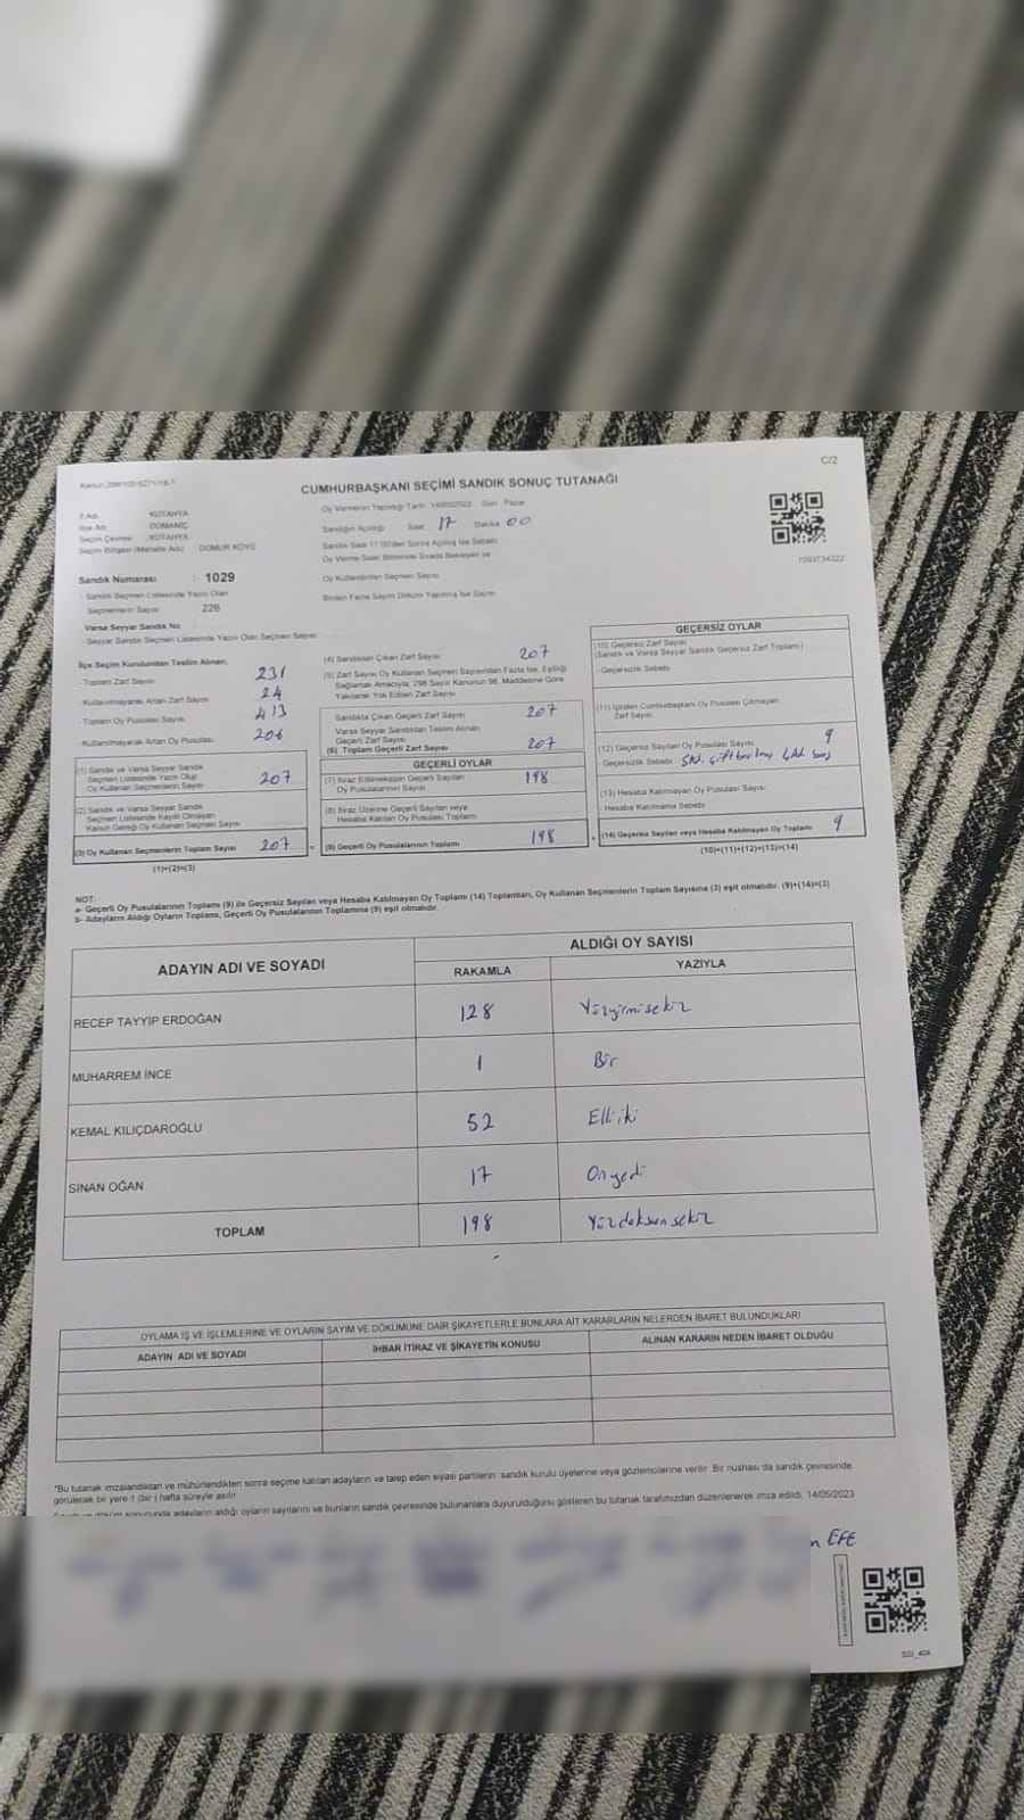 C/2
CUMHURBAŞKANI SEÇİMİ SANDIK SONUÇ TUTANAĞI
İl Adı KÜTAHYA
İlçe Adı DOMANİÇ
Seçim Çevresi KÜTAHYA
Seçim Bölgesi (Mahalle Adı) : DOMUR KÖYÜ
Sandık Numarası : 1029
Sandık Seçmen Listesinde Yazılı Olan
Seçmenlerin Sayısı 226
Varsa Seyyar Sandık No
Seyyar Sandık Seçmen Listesinde Yazılı Olan Seçmen Sayısı
Oy Vermenin Yapıldığı Tarih Gün : Pazar
Sandığın Açıldığı Saat 17 Dakika 00
Oy Kullandırılan Seçmen Sayısı
Birden Fazla Sayım Döküm Yapılmış İse Sayısı
İlçe Seçim Kurulundan Teslim Alınan,
Toplam Zarf Sayısı 231
Kullanılmayarak Artan Zarf Sayısı 24
Toplam Oy Pusulası Sayısı 413
Kullanılmayarak Artan Oy Pusulası 206
(1) Sandık ve Varsa Seyyar Sandık
Seçmen Listesinde Yazılı Olup
Oy Kullanan Seçmenlerin Sayısı 207
(2) Sandık ve Varsa Seyyar Sandık
Seçmen Listesinde Kayıtlı Olmayan
Kanun Gereği Oy Kullanan Seçmen Sayısı
(3) Oy Kullanan Seçmenlerin Toplam Sayısı 207
(1)+(2)=(3)
(4) Sandıktan Çıkan Zarf Sayısı 207
(5) Zarf Sayısı Oy Kullanan Seçmen Sayısından Fazla İse, Eşitliği
Sağlamak Amacıyla, 298 Sayılı Kanunun 98. Maddesine Göre
Yakılarak Yok Edilen Zarf Sayısı
Sandıkta Çıkan Geçerli Zarf Sayısı 207
Varsa Seyyar Sandıktan Teslim Alınan
Geçerli Zarf Sayısı
(6) Toplam Geçerli Zarf Sayısı 207
GEÇERLİ OYLAR
(7) İtiraz Edilmeksizin Geçerli Sayılan
Oy Pusulalarının Sayısı 198
(8) İtiraz Üzerine Geçerli Sayılan veya
Hesaba Katılan Oy Pusulası Toplamı
(9) Geçerli Oy Pusulalarının Toplamı 198
GEÇERSİZ OYLAR
(10) Geçersiz Zarf Sayısı
(Sandık ve Varsa Seyyar Sandık Geçersiz Zarf Toplamı)
Geçersizlik Sebebi
(11) İçinden Cumhurbaşkanı Oy Pusulası Çıkmayan
Zarf Sayısı
(12) Geçersiz Sayılan Oy Pusulası Sayısı 9
Geçersizlik Sebebi
(13) Hesaba Katılmayan Oy Pusulası Sayısı
Hesaba Katılmama Sebebi
(14) Geçersiz Sayılan veya Hesaba Katılmayan Oy Toplamı 9
(10)+(11)+(12)+(13)=(14)
NOT:
a- Geçerli Oy Pusulalarının Toplamı (9) ile Geçersiz Sayılan veya Hesaba Katılmayan Oy Toplamı (14) Toplamları, Oy Kullanan Seçmenlerin Toplam Sayısına (3) eşit olmalıdır. (9)+(14)=(3)
b- Adayların Aldığı Oyların Toplamı, Geçerli Oy Pusulalarının Toplamına (9) eşit olmalıdır.
ADAYIN ADI VE SOYADI
ALDIĞI OY SAYISI
RAKAMLA YAZIYLA
RECEP TAYYİP ERDOĞAN 128 Yüzyirmisekiz
MUHARREM İNCE 1 Bir
KEMAL KILIÇDAROĞLU 52 Elliiki
SİNAN OĞAN 17 Onyedi
TOPLAM 198 Yüzdoksansekiz
OYLAMA İŞ VE İŞLEMLERİNE VE OYLARIN SAYIM VE DÖKÜMÜNE DAİR ŞİKAYETLERLE BUNLARA AİT KARARLARIN NELERDEN İBARET BULUNDUKLARI
ADAYIN ADI VE SOYADI
İHBAR İTİRAZ VE ŞİKAYETİN KONUSU
ALINAN KARARIN NEDEN İBARET OLDUĞU
*Bu tutanak imzalandıktan ve mühürlendikten sonra seçime katılan adayların ve talep eden siyasi partilerin sandık kurulu üyelerine veya gözlemcilerine verilir. Bir nüshası da sandık çevresinde,
görülecek bir yere 1 (bir) hafta süreyle asılır.
adayların aldığı oyların sayılarını ve bunların sandık çevresinde bulunanlara duyurulduğunu gösteren bu tutanak tarafımızdan düzenlenerek imza edildi. 14/05/2023
n EFE